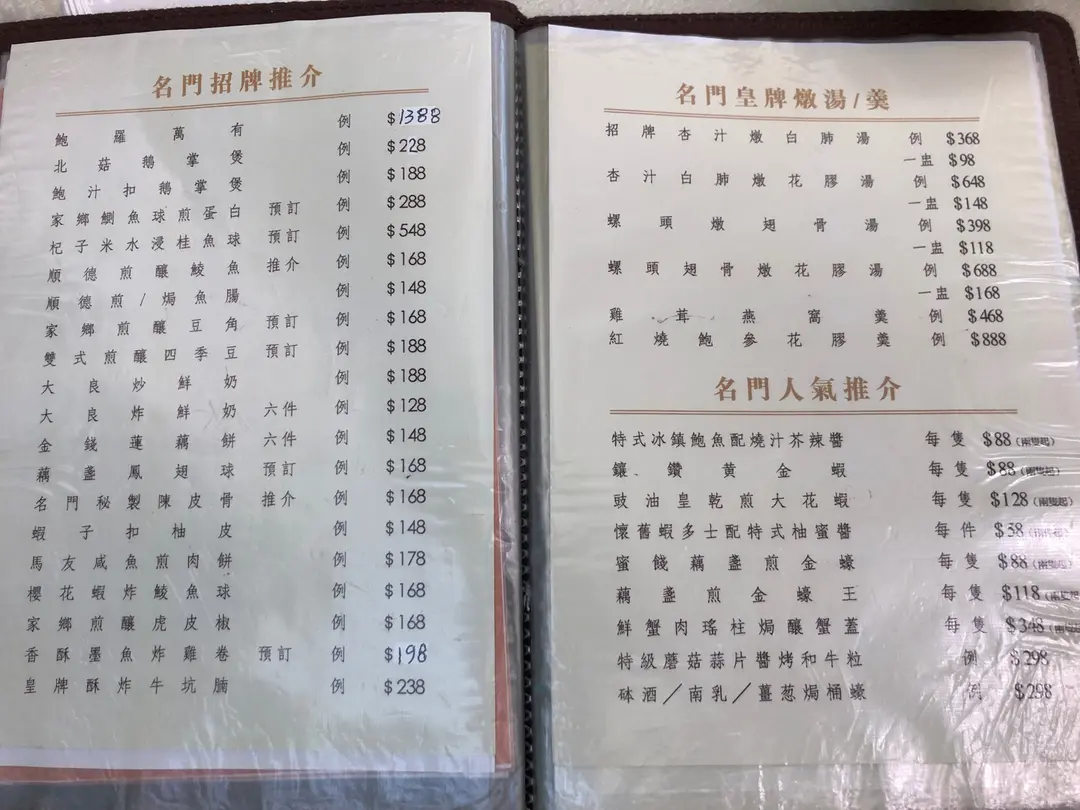 名門招牌推介
鮑羅萬有 例 $1388
北菇鵝掌煲 例 $228
鮑汁扣鵝掌煲 例 $188
家鄉鰂魚球煎蛋白 預訂 例 $288
杞子米水浸桂魚球 預訂 例 $548
順德煎釀鯪魚 推介 例 $168
順德煎/焗魚腸 例 $148
家鄉煎釀豆角 預訂 例 $168
雙式煎釀四季豆 預訂 例 $188
大良炒鮮奶 例 $188
大良炸鮮奶 六件 例 $128
金錢蓮藕餅 六件 例 $148
藕盞鳳翅球 預訂 例 $168
名門秘製陳皮骨 推介 例 $168
蝦子扣柚皮 例 $148
馬友咸魚煎肉餅 例 $178
櫻花蝦炸鯪魚球 例 $168
家鄉煎釀虎皮椒 例 $168
香酥墨魚炸雞卷 預訂 例 $198
皇牌酥炸牛坑腩 例 $238
名門皇牌燉湯/羹
招牌杏汁燉白肺湯 例 $368
一盅 $98
杏汁白肺燉花膠湯 例 $648
一盅 $148
螺頭燉翅骨湯 例 $398
一盅 $118
螺頭翅骨燉花膠湯 例 $688
一盅 $168
雞茸燕窩羹 例 $468
紅燒鮑參花膠羹 例 $888
名門人氣推介
特式冰鎮鮑魚配燒汁芥辣醬 每隻 $88(兩隻起)
鑲鑽黄金蝦 每隻 $88(兩隻起)
豉油皇乾煎大花蝦 每隻 $128(兩隻起)
懷舊蝦多士配特式柚蜜醬 每件 $38(兩件起)
蜜餞藕盞煎金蠔 每隻 $88(兩隻起)
藕盞煎金蠔王 每隻 $118(兩隻起
鮮蟹肉瑤柱焗釀蟹蓋 每隻 $348(兩隻起
特級蘑菇蒜片醬烤和牛粒 例 $298
砵酒/南乳/薑葱焗桶蠔 例 $298